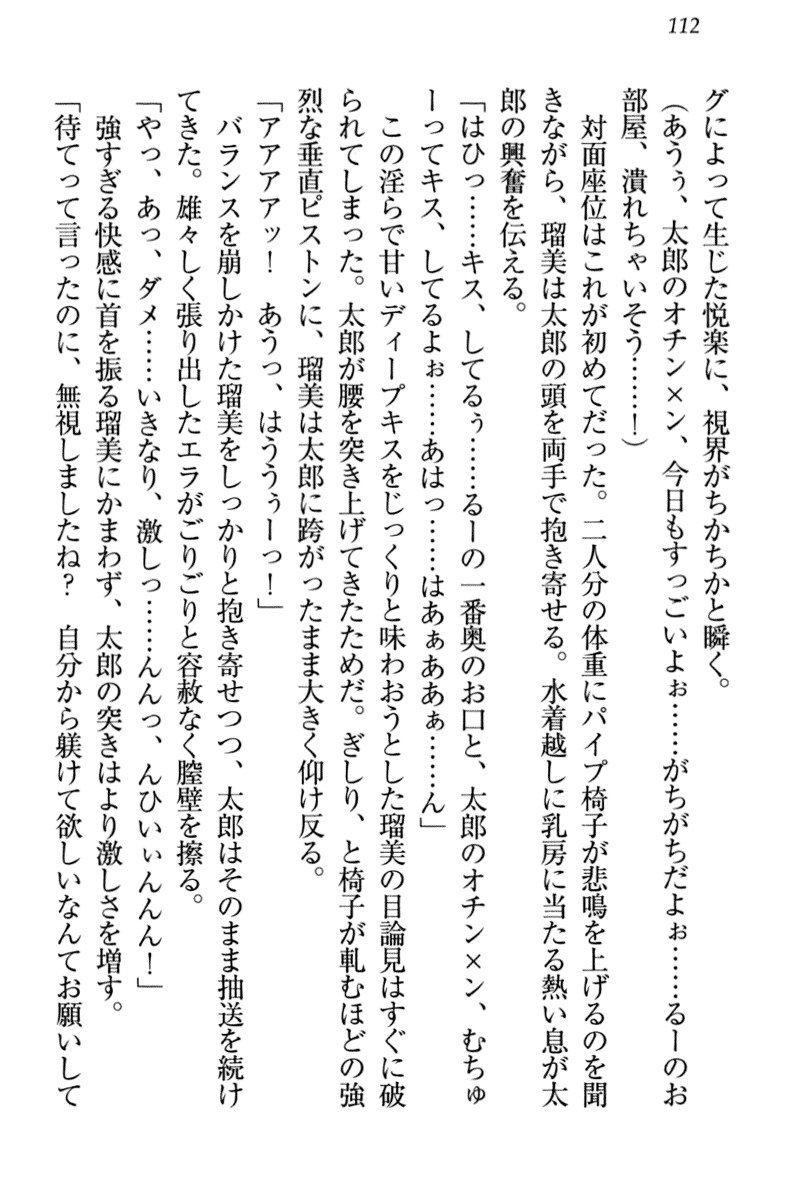 112
グによって生じた悦楽に、視界がちかちかと瞬く。
(あうぅ、太郎のオチン×ン、今日もすっごいよぉ……がちがちだよぉ……るーのお
部屋、潰れちゃいそう……！)
対面座位はこれが初めてだった。二人分の体重にパイプ椅子が悲鳴を上げるのを聞
きながら、瑠美は太郎の頭を両手で抱き寄せる。水着越しに乳房に当たる熱い息が太
郎の興奮を伝える。
「はひっ……キス、してるぅ……るーの一番奥のお口と、太郎のオチン×ン、むちゅ
ーってキス、してるよぉ……あはっ……はあぁああぁ……ん」
この淫らで甘いディープキスをじっくりと味わおうとした瑠美の目論見はすぐに破
られてしまった。太郎が腰を突き上げてきたためだ。ぎしり、と椅子が軋むほどの強
烈な垂直ピストンに、瑠美は太郎に跨がったまま大きく仰け反る。
「アアアアッ！　あうっ、はううぅーっ！」
バランスを崩しかけた瑠美をしっかりと抱き寄せつつ、太郎はそのまま抽送を続け
てきた。雄々しく張り出したエラがごりごりと容赦なく膣壁を擦る。
「やっ、あっ、ダメ……いきなり、激しっ……んんっ、んひいぃんんん！」
強すぎる快感に首を振る瑠美にかまわず、太郎の突きはより激しさを増す。
「待てって言ったのに、無視しましたね？　自分から躾けて欲しいなんてお願いして